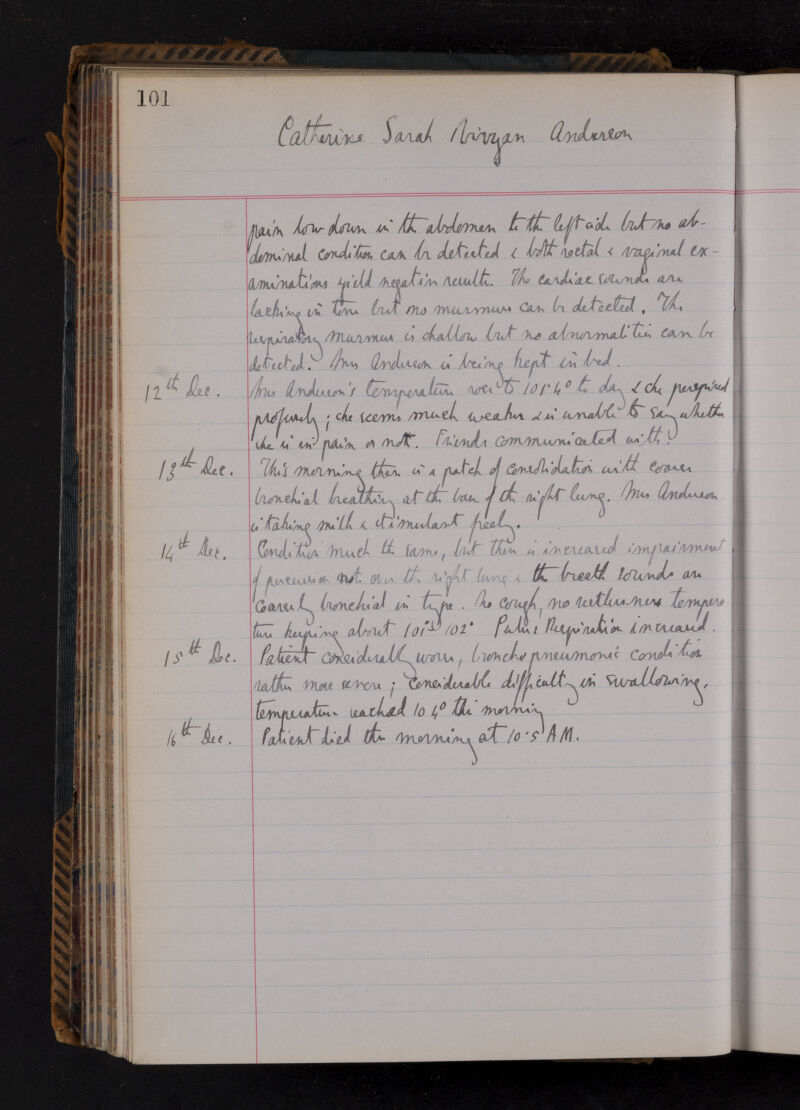 101
Catherine Sarah Anderson
pain low down in the abdomen to the left side but no ab-
dominal condition can be detected & both rectal & vaginal ex-
aminations yield negative results. The cardiac sounds are
lacking in tone but no murmurs can be detected. The
respiratory murmur is shallow but no abnormalities can be
detected. Mrs Anderson is being kept in bed.
12th Dec. Mrs Anderson's temperature rose to 101·4° to day & she perspired
profusely; she seems much weaker & is unable to say whether
she is in pain or not. Friends communicated with.
13th Dec. This morning there is a patch of consolidation with coarse
bronchial breathing at the base of the right lung. Mrs Anderson
is taking milk & stimulant freely.
14th Dec. Condition much the same, but there is increased impairment
of percussion note over the right lung & the breath sounds are
coarsely bronchial in type. No cough, no restlessness tempera-
ture keeping about 101° 102° Pulse & Respiration increased.
15th Dec. Patient considerably worse, broncho pneumonic condition
rather more severe; considerable difficulty in swallowing,
temperature reached 104° this morning
16th Dec. Patient died this morning at 10·5 AM.